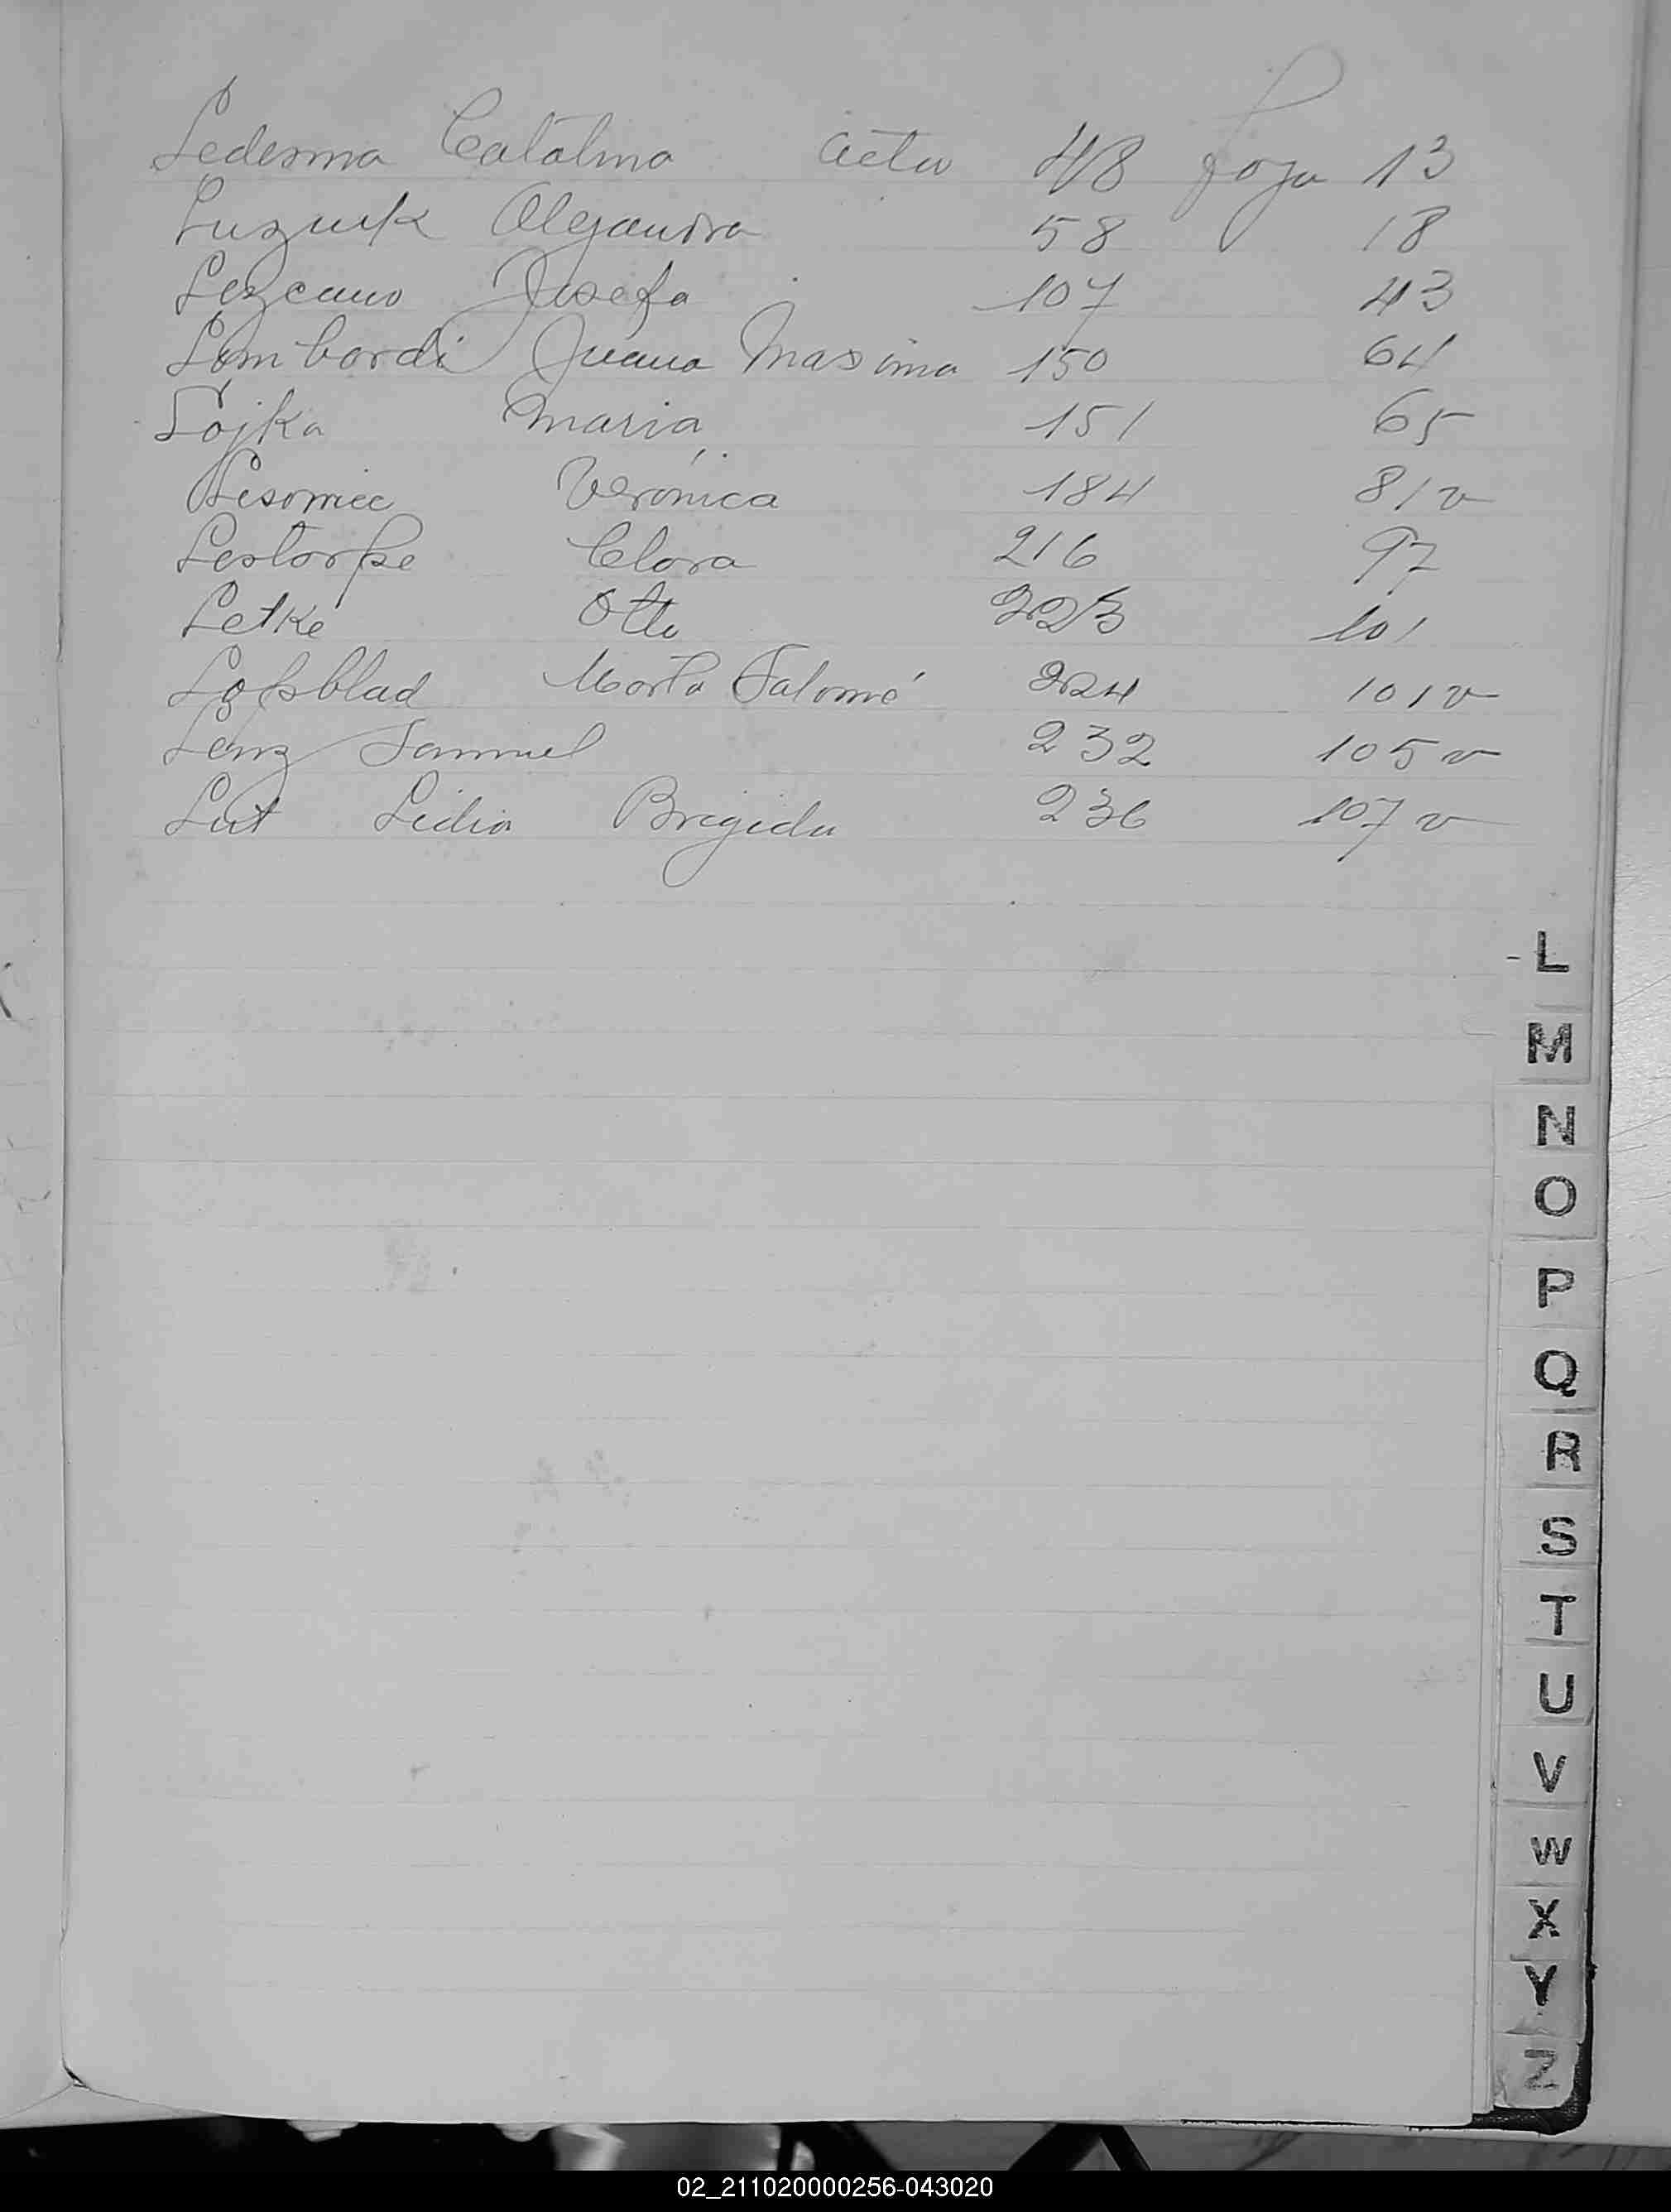 Ledesma Catalina acta 48 foja 13
Luznik Alejandra 58 18
Lezcano Josefa 107 43
Lombardi Juana Maxima 150 64
Lojka Maria 151 65
Lisowiec Verónica 184 81v
Lestorpe Clara 216 97
Letke Otto 223 101
Lofsblad Marta Salomé 224 101v
Lenz Samuel 232 105v
Lut Lidia Brigida 236 107v
L
M
N
O
P
Q
R
S
T
U
V
W
X
Y
Z
02_211020000256-043020